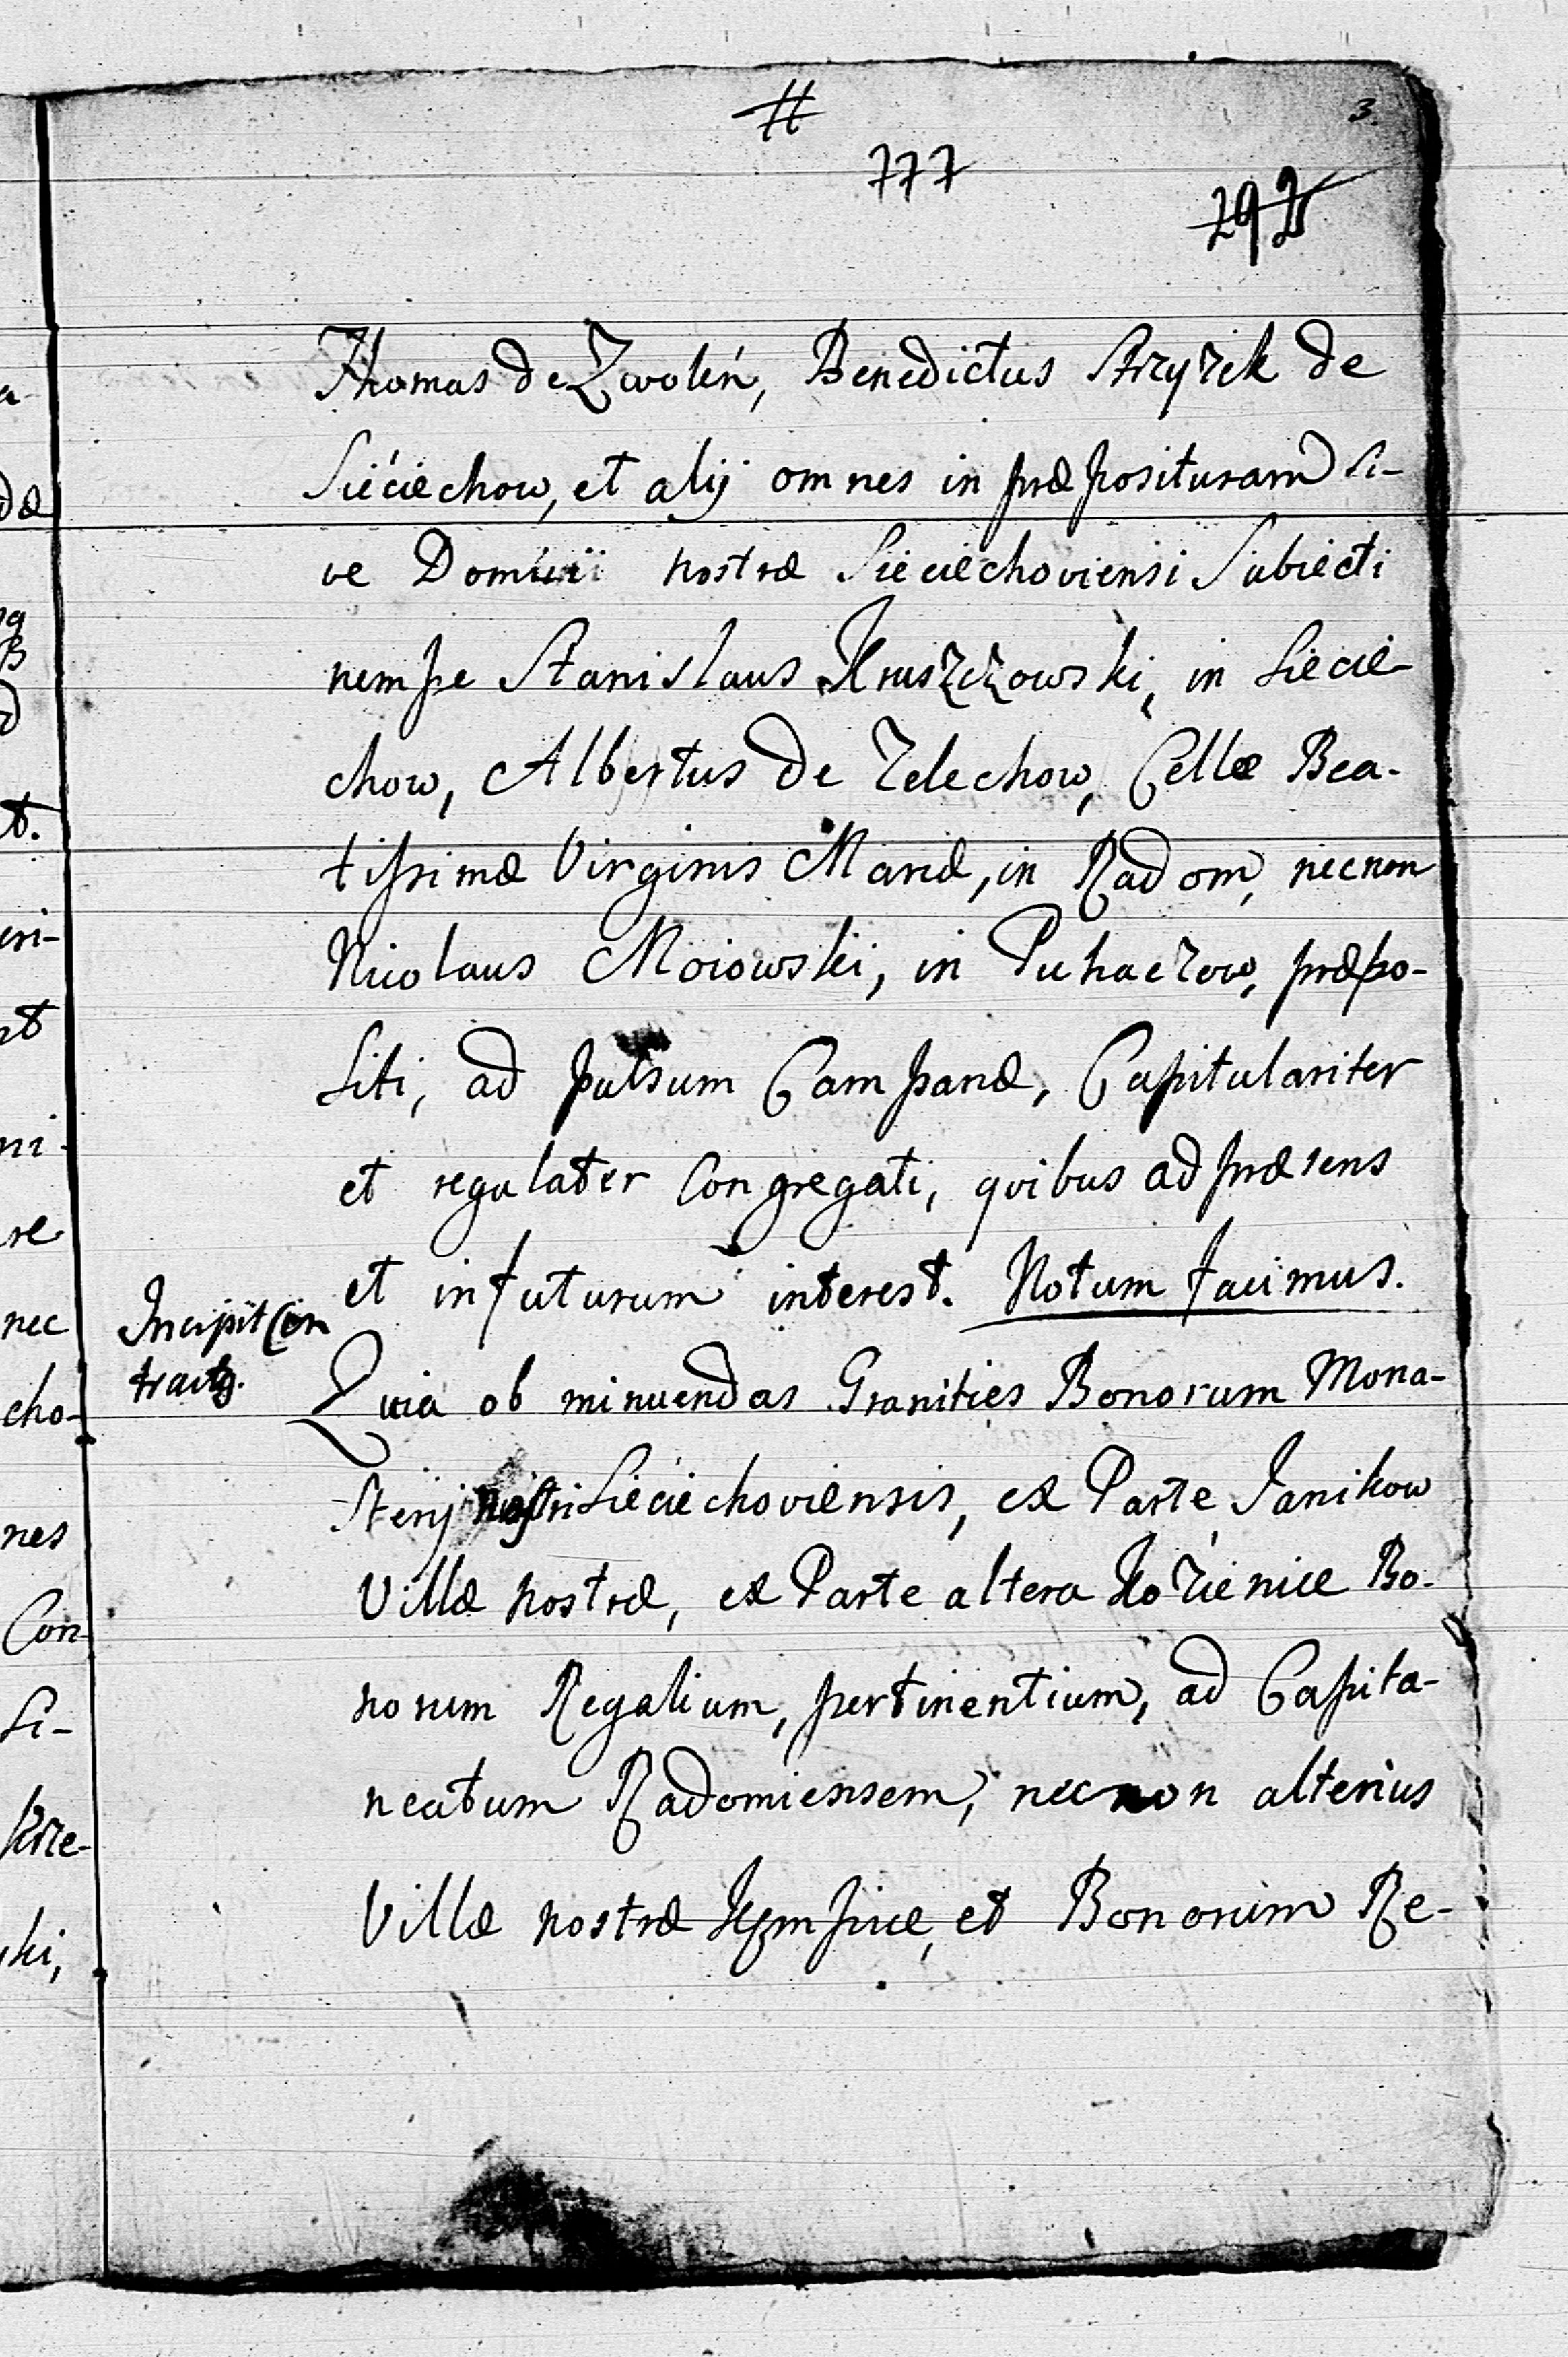 #
3.
777
292
Thomas de Zwoleń, Benedictus Strzyżek de
Siéciechow, et alij omnes in præposituram si-
ve Domui nostræ Sieciechoviensi Subiecti
nempe Stanislaus Kruszczowski, in Siecie-
chow, Albertus de Zelechow, Cellæ Bea-
tissimæ Virginis Mariæ, in Radom, necnon
Nicolaus Moiowski, in Puhaczow, præpo-
siti, ad pulsum Campanæ, Capitulariter
et regulater Congregati, quibus ad præsens
et in futurum interest. Notum facimus.
Incipit Con
tractq.
Quia ob minuendas Granities Bonorum Mona-
sterij nostri Siéciechoviensis, ex Parte Janikow
Villæ nostræ, ex Parte altera Kozienice Bo-
norum Regalium, pertinentium, ad Capita-
neatum Radomiensem, necnon alterius
Villæ nostræ Kęmpice, et Bonorum Re-